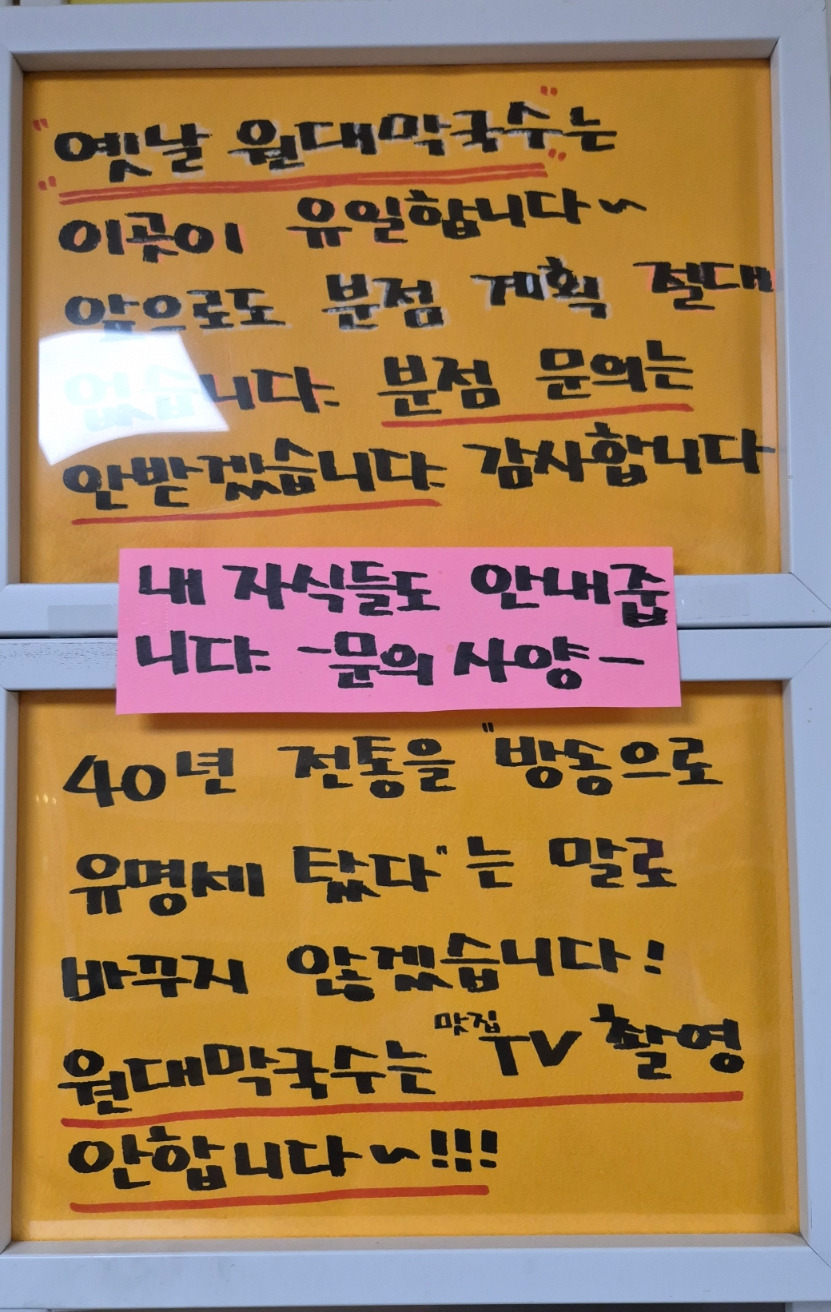 "옛날 원대막국수"는
이곳이 유일합니다~
앞으로도 분점 계획 절대
없습니다. 분점 문의는
안받겠습니다. 감사합니다
내 자식들도 안내줍
니다. -문의 사양-
40년 전통을 "방송으로
유명세 탔다"는 말로
바꾸지 않겠습니다!
원대막국수는 맛집 TV 촬영
안합니다~!!!